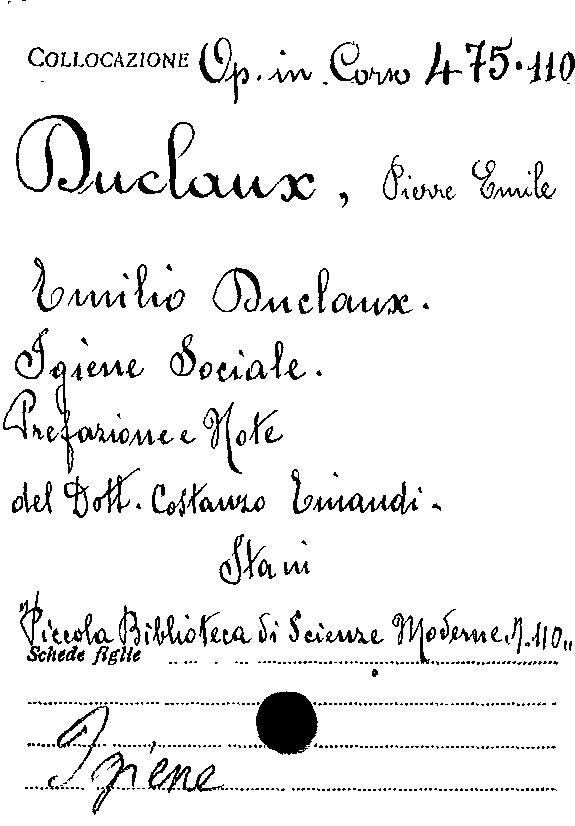 COLLOCAZIONE Op. in Corso 475.110
Duclaux, Pierre Emile
Emilio Duclaux.
Igiene Sociale.
Prefazione e Note
del Dott. Costanzo Einaudi.
"Piccola Biblioteca di Scienze Moderne N. 110„
Schede figlie
Igiene